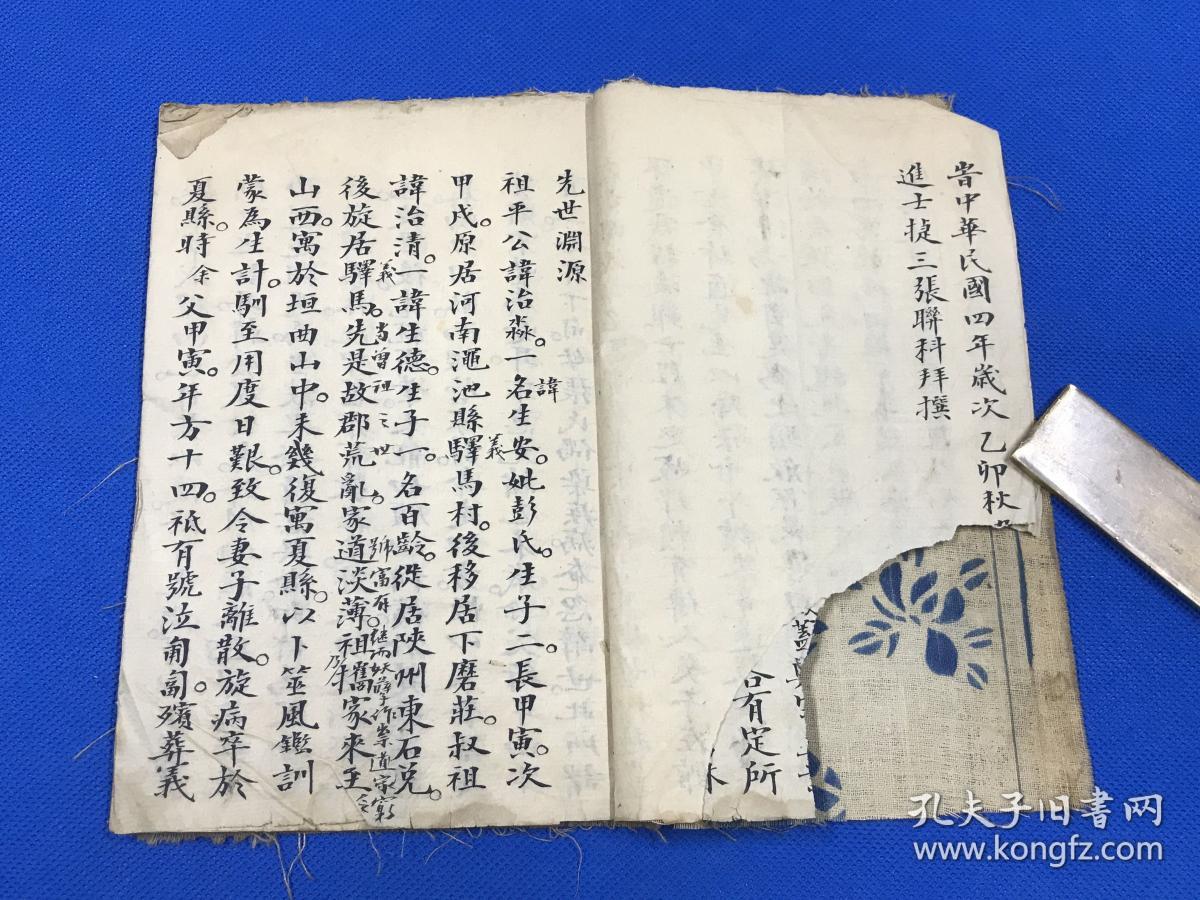 旹中華民國四年歲次乙卯秋
進士捷三張聯科拜撰
合有定所
先世淵源
祖平公諱治淼。一諱名生安。妣彭氏。生子二。長甲寅。次
甲戌。原居河南澠池縣義驛馬村。後移居下磨莊。叔祖
諱治清。一諱生德。生子一。名百齡。從居陝州東石兑。
後旋居義驛馬。先是故郡荒亂。家道淡薄。祖乃攜家來至
當曾祖之世
號富有。继而妖孽作祟道家窮
山西。寓於垣曲山中。未幾復寓夏縣。以卜筮風鑑訓
蒙為生計。馴至用度日艱。致令妻子離散。旋病卒於
夏縣。時余父甲寅。年方十四。祗有號泣匍匐。殯葬義
孔夫子旧书网
www.kongfz.com